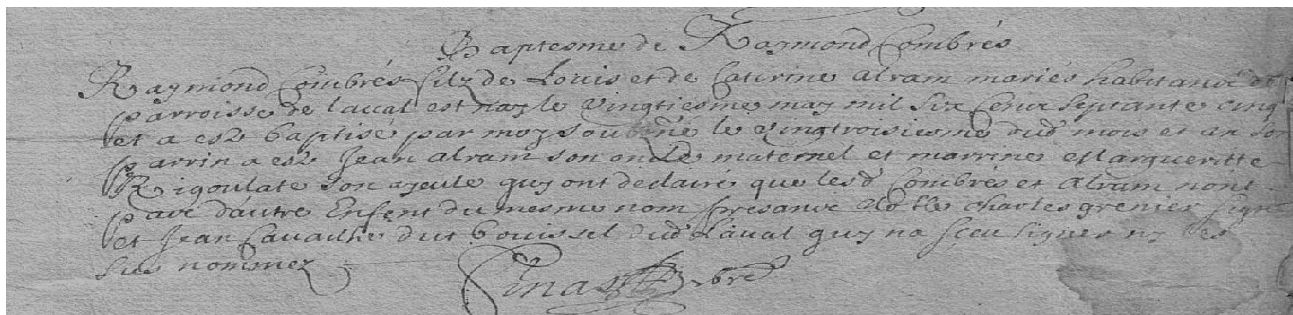 Baptesme de Raymond Combrés
Raymond Combrés filz de Louis et de Catirine alram mariés habitans
parroisse de laval est nay le vingtiesme may mil six cens septante cinq
et a esté baptisé par moy soubné le vingtroisiesme dud mois et an son
parrin a esté Jean alram son oncle maternel et marrine Margueritte
Rigoulate son ayeule quy ont declairé que lesd Combrés et alram nont
d'autre Enfent du mesme nom presans charles grenier
et Jean Cavailhé dit bouissel dud laval quy na sceu signer ny les
sus nommez